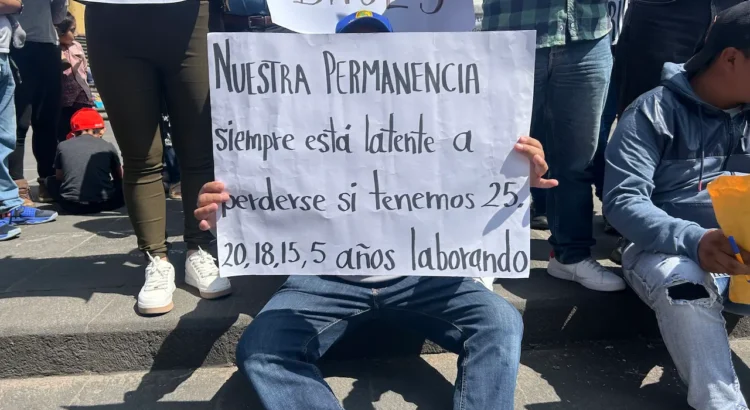 NUESTRA PERMANENCIA
siempre está latente a
perderse si tenemos 25.
20,18,15,5 años laborando